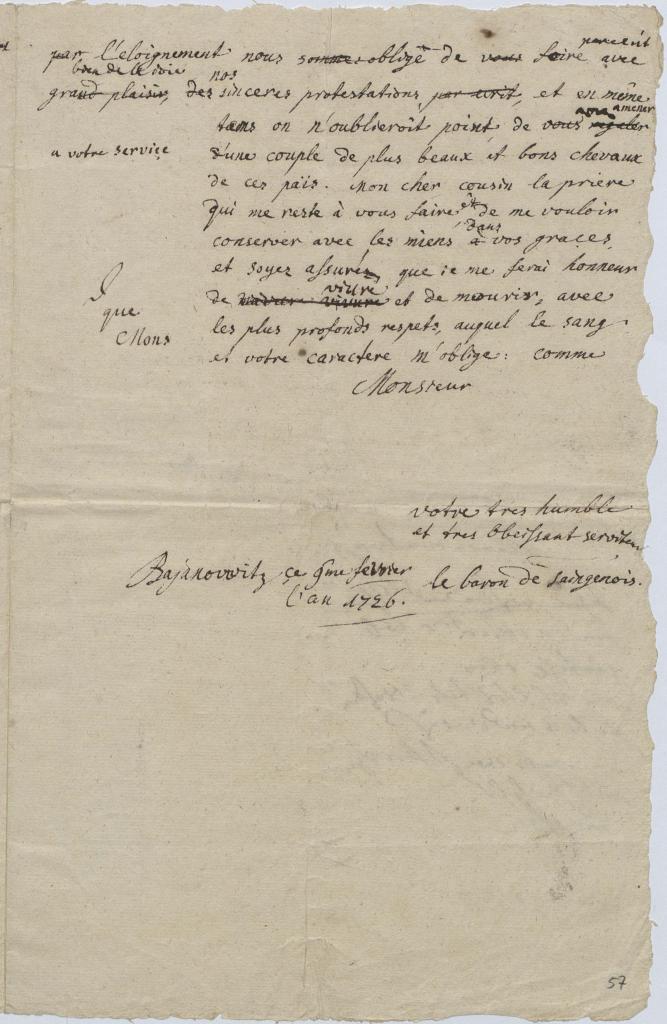 par l'eloignement nous sommes obligé de vous faire par ecrit avec
bien de la joie nos
grand plaisir, des sinceres protestations par ecrit, et en même
tems on n'oublieroit point de vous regaler amener
a votre service d'une couple de plus beaux et bons chevaux
de ces païs. Mon cher cousin la priere
qui me reste à vous faire est de me vouloir
conserver avec les miens à dans vos graces,
et soyez assuréz que je me ferai honneur
de vivre et de mourir, avec
les plus profonds respets, auquel le sang
et votre caractere m'oblige: comme
Monsieur
que
Mons
votre tres humble
et tres obeissant serviteur
Bajanovvitz ce 9me fevrier
l'an 1726.
le baron de saingenois.
57